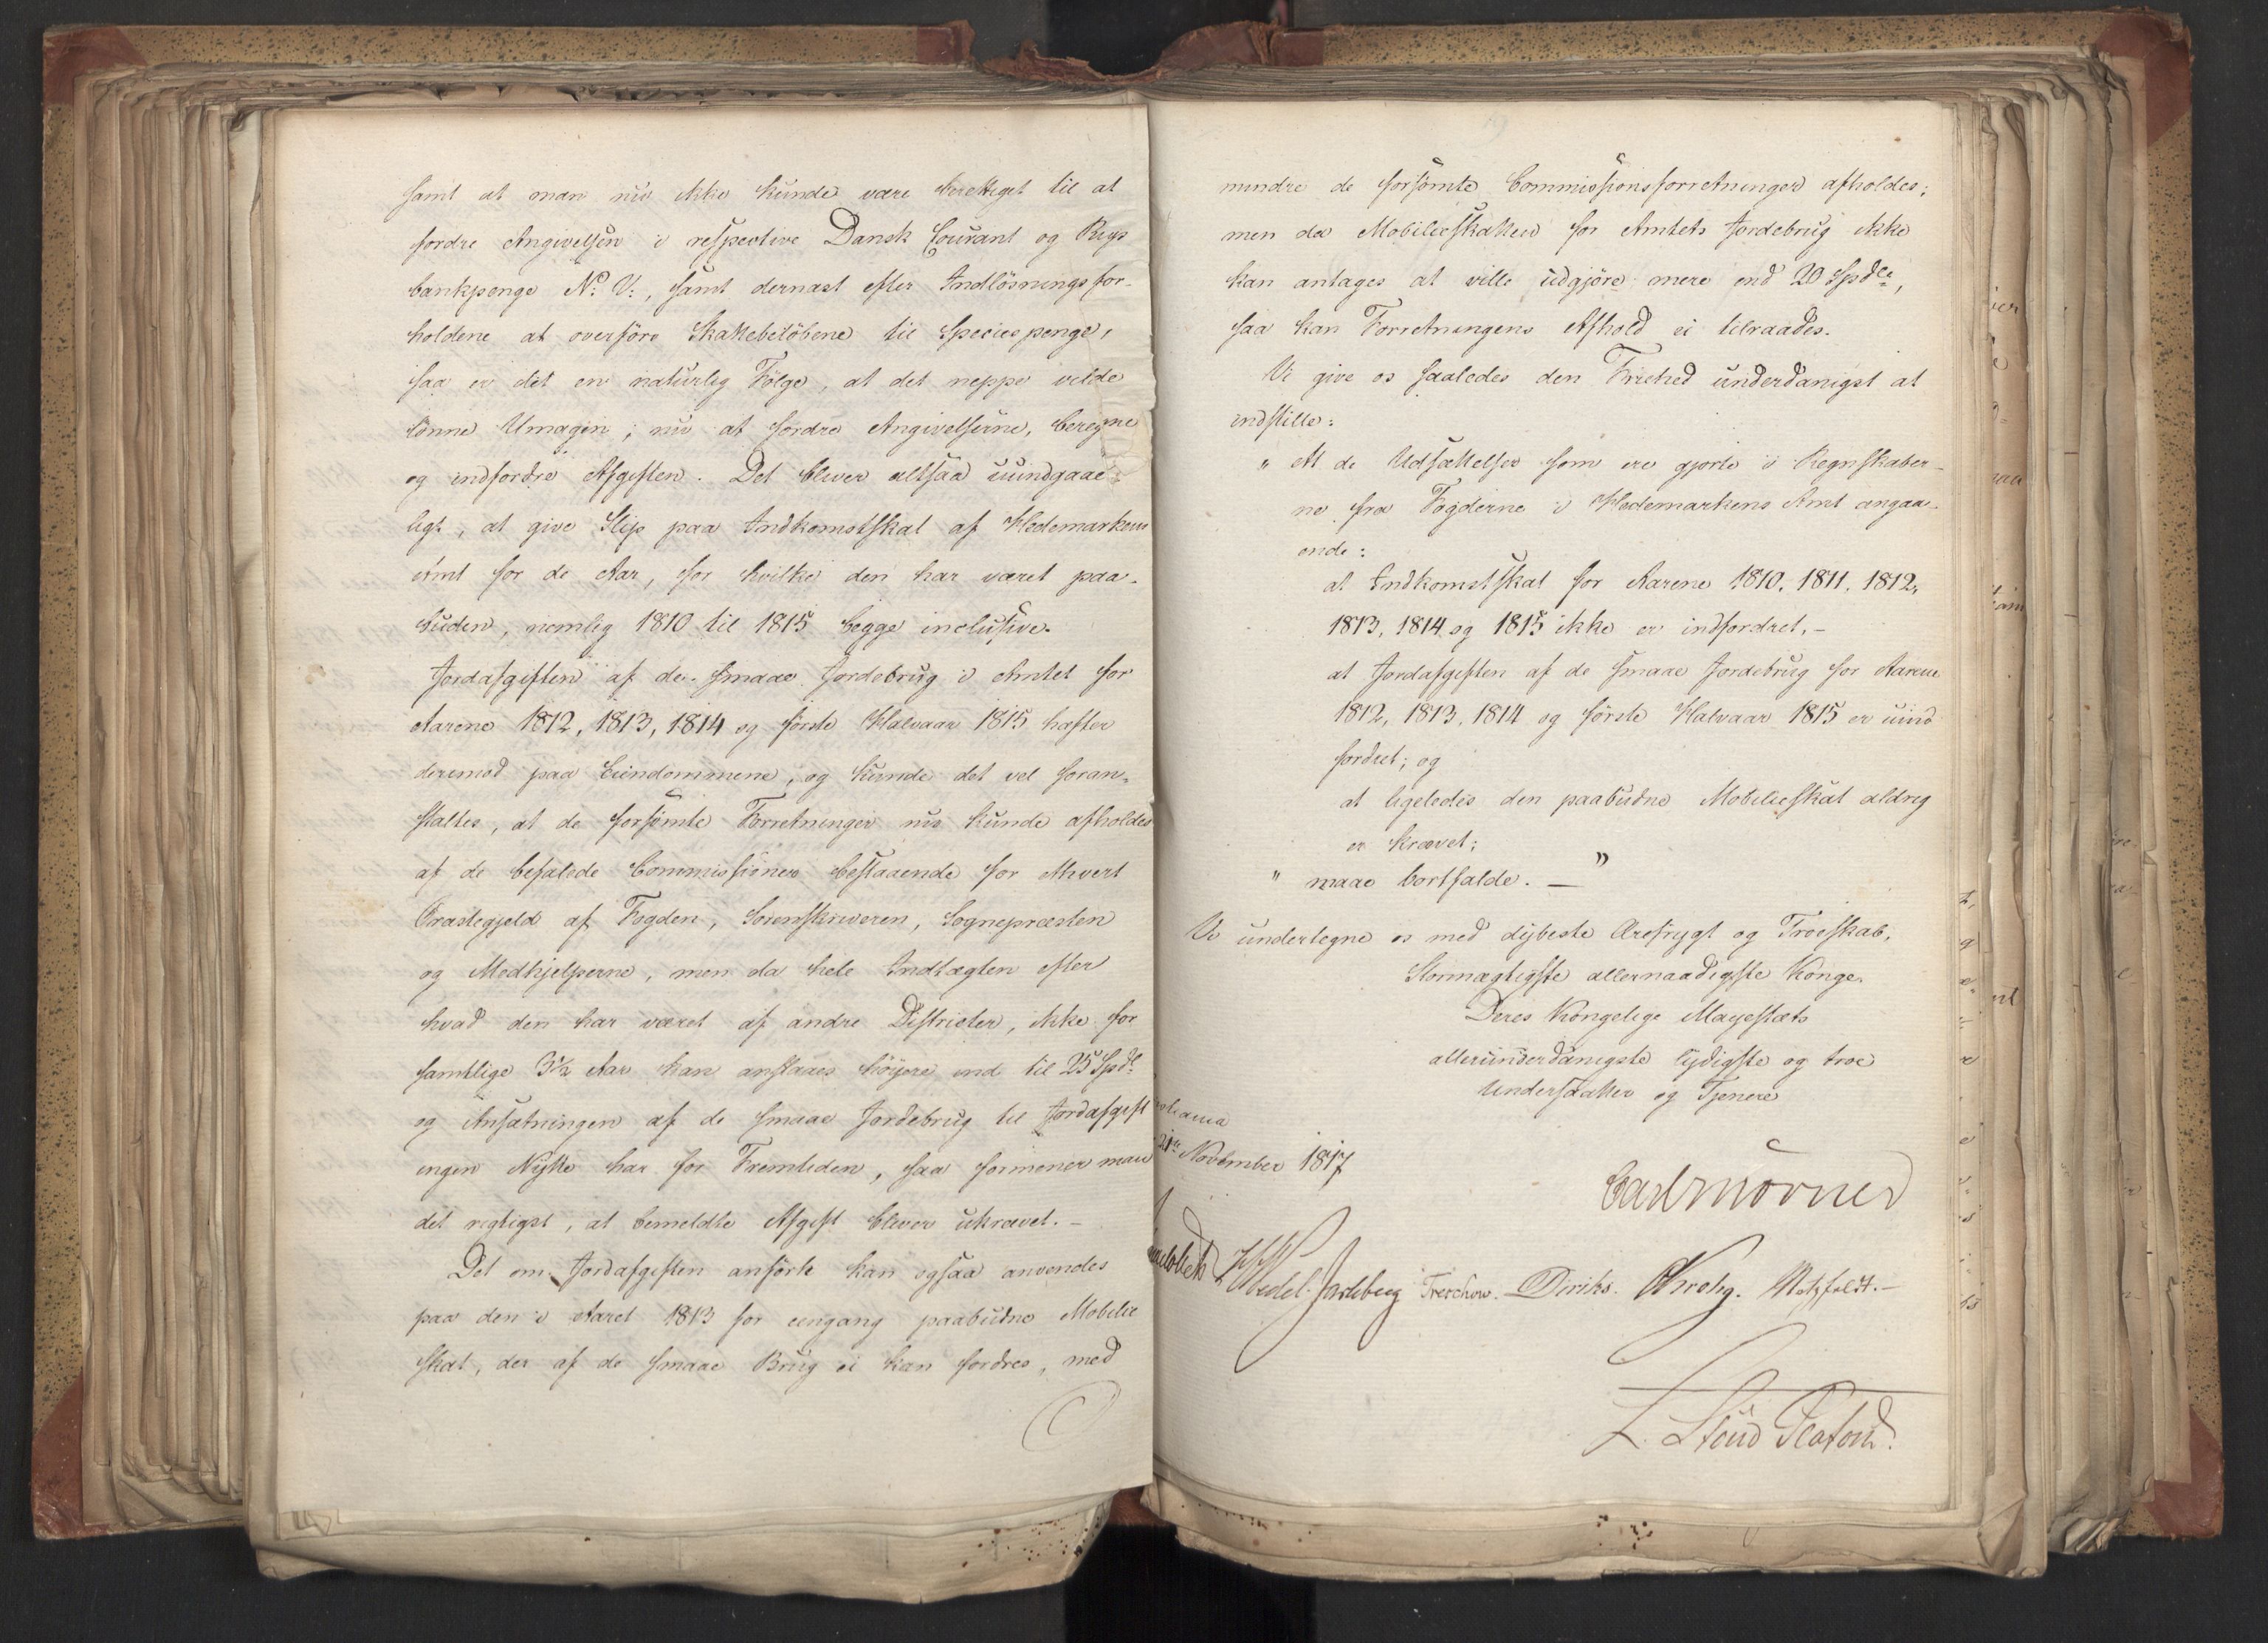 samt at man nu ikke kunde være berettiget til at
fordre Angivelsen i respective Dansk Courant og Rigs
bankpenge N: V:, samt dernæst efter Indlösningsfor-
holdene at overföre Skattebelöbene til Speciespenge,
saa er det en naturlig Fölge, at det neppe vilde
lönne Umagen, nu at fordre Angivelserne, beregne
og indfordre Afgiften. Det bliver altsaa uundgaae
ligt, at give Slip paa Indkomstskat af Hedemarkens
Amt for de Aar, for hvilke den har været paa-
buden, nemlig 1810 til 1815 begge inclusive.
Jordafgiften af de smaae Jordebrug i Amtet for
Aarene 1812, 1813, 1814 og förste Halvaar 1815 hæfter
derimod paa Eiendommene, og kunde det vel foran-
staltes, at de forsömte Forretninger nu kunde afholdes
af de befalede Commissioner bestaaende for ethvert
Præstegjeld af Fogden, Sorenskriveren, Sognepræsten
og Medhjelperne, men da hele Indtægten efter
hvad den har været af andre Districter, ikke for
samtlige 3½ Aar kan anslaaes höyere end til 25 Spdl:
og Ansætningen af de smaae Jordebrug til Jordafgift
ingen Nytte har for Fremtiden, saa formener man
det rigtigst, at bemeldte Afgift bliver ukrævet. -
Det om Jordafgiften anförte kan ogsaa anvendes
paa den i Aaret 1813 for eengang paabudne Mobilie
skat, der af de smaae Brug ei kan fordres, med
mindre de forsömte Commissionsforretninger afholdes;
men da Mobilieskatten for Amtets Jordebrug ikke
kan antages at ville udgjöre mere end 20 Spdlr,
saa kan Forretningens Afhold ei tilraades.
Vi give os saaledes den Friehed underdanigst at
indstille:
" At de Udsættelser som ere gjorte i Regnskaber-
ne fra Fogderne i Hedemarkens Amt angaa-
ende:
at Indkomstskat for Aarene 1810. 1811. 1812,
1813, 1814 og 1815 ikke er indfordret, -
at Jordafgiften af de smaae Jordebrug for Aarene
1812, 1813, 1814 og förste Halvaar 1815 er uind
fordret; og
at ligeledes den paabudne Mobilieskat aldrig
er krævet;
" maae bortfalde. — "
Vi undertegne os med dybeste Ærefrygt og Troeskab,
Stormægtigste allernaadigste Konge.
Deres Kongelige Mayestæts
allerunderdanigste lydigste og troe
Undersaatter og Tjenere
November 1817
Carl Mörner
Wedel-Jarlsberg Treschow. Diriks. Krohg. Motzfeldt. -
L. Stoud Platou.